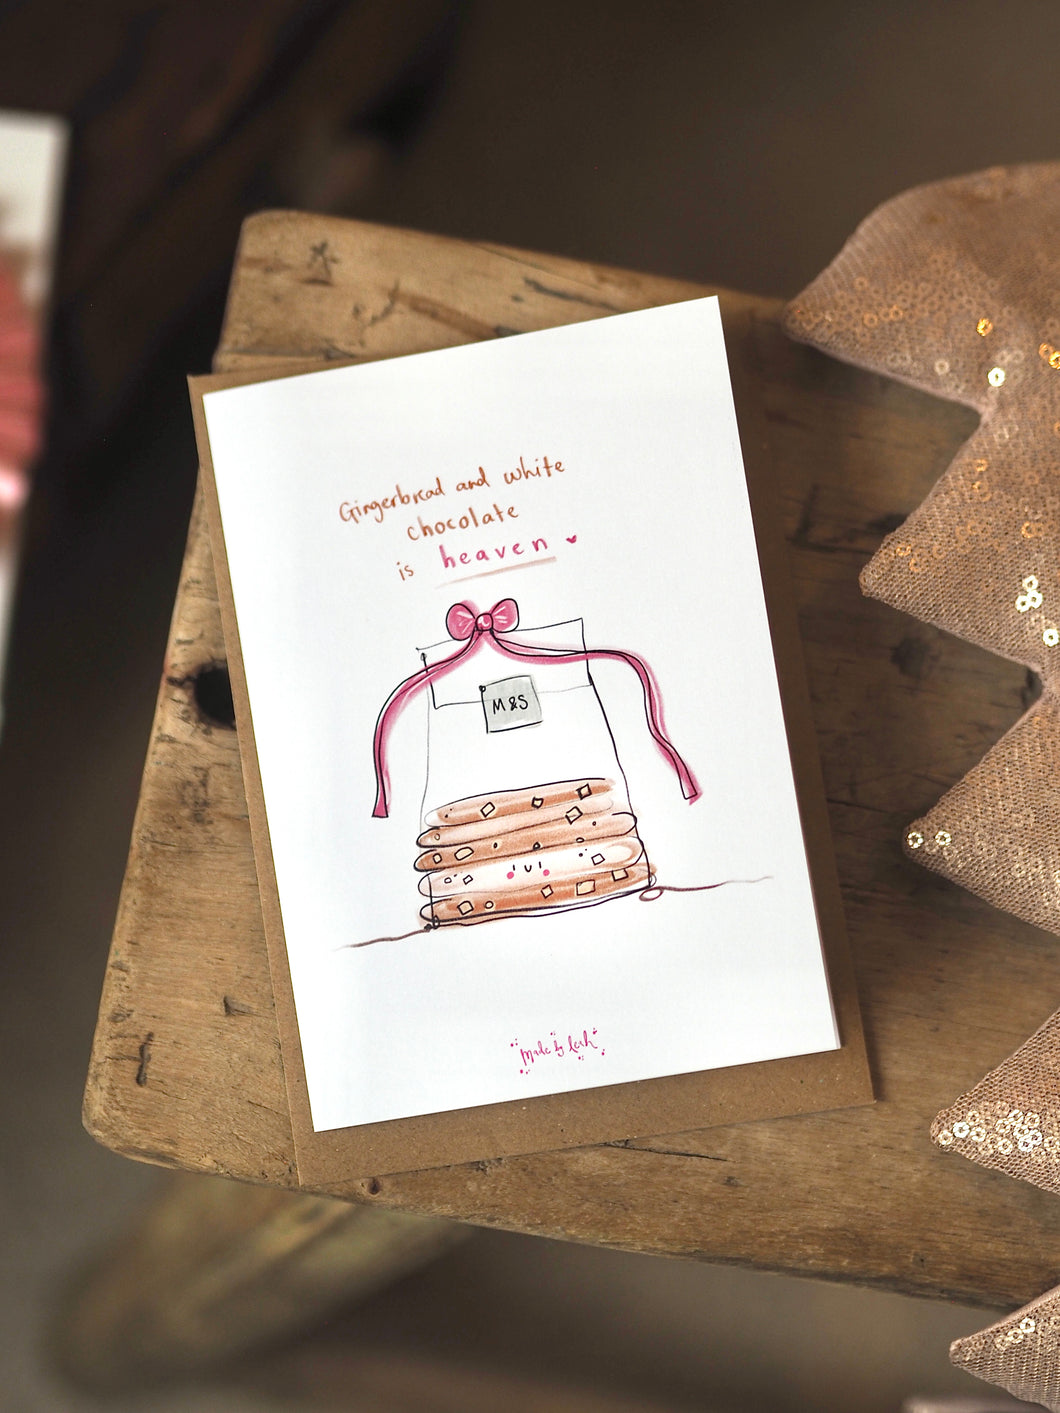 Gingerbread and white
chocolate
is heaven
M&S
Made by Leah